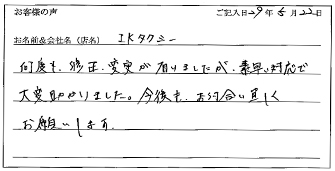 お客様の声 ご記入日 29年 5月 22日
お名前&会社名(店名) IKタクシー
何度も、修正、変更が有りましたが、素早い対応で
大変助かりました。今後も、お付合い宜しく
お願いします。